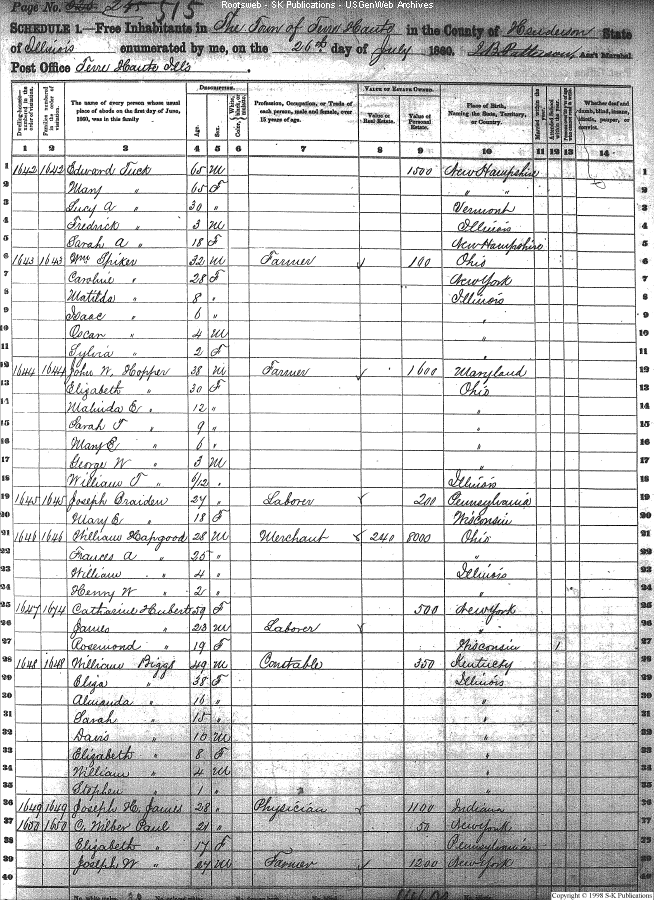 Rootsweb - SK Publications - USGenWeb Archives
Page No. 245 515
SCHEDULE 1.—Free Inhabitants in The Town of Terre Haute in the County of Henderson State
of Illinois enumerated by me, on the 26th day of July 1860. J. B. Patterson, Ass't Marshal.
Post Office Terre Haute Ill's
Dwelling-houses—numbered in the order of visitation.
Families numbered in the order of visitation.
The name of every person whose usual place of abode on the first day of June, 1860, was in this family
DESCRIPTION.
Age.
Sex.
Profession, Occupation, or Trade of each person, male and female, over 15 years of age.
VALUE OF ESTATE OWNED.
Value of Real Estate.
Value of Personal Estate.
Place of Birth, Naming the State, Territory, or Country.
Whether deaf and dumb, blind, insane, idiotic, pauper, or convict.
1 2 3 4 5 6 7 8 9 10 11 12 13 14
1 1642 1642 Edward Tuck 65 M 1500 New Hampshire 1
2 Mary " 65 F " " 2
3 Lucy A " 30 " Vermont 3
4 Fredrick " 3 M Illinois 4
5 Sarah A " 18 F New Hampshire 5
6 1643 1643 Wm Spiker 32 M Farmer 100 Ohio 6
7 Caroline " 28 F New York 7
8 Matilda " 8 " Illinois 8
9 Isaac " 6 " " 9
10 Oscar " 4 M " 10
11 Sylvia " 2 F " 11
12 1644 1644 John W. Hopper 38 M Farmer 1600 Maryland 12
13 Elizabeth " 30 F Ohio 13
14 Malinda E " 12 " " 14
15 Sarah F " 9 " " 15
16 Mary E " 6 " " 16
17 George W " 3 M " 17
18 William T " /12 " Illinois 18
19 1645 1645 Joseph Braiden 27 " Laborer 200 Pennsylvania 19
20 Mary E " 18 F Wisconsin 20
21 1646 1646 William Hapgood 28 M Merchant 240 8000 Ohio 21
22 Frances A " 25 " " 22
23 William " 4 " Illinois 23
24 Henry W " 2 " " 24
25 1647 1674 Catharine Hubert 59 F 500 New York 25
26 James " 23 M Laborer " 26
27 Rosemond " 19 F Wisconsin 1 27
28 1648 1648 William Biggs 49 M Constable 350 Kentucky 28
29 Eliza " 38 F Illinois 29
30 Almanda " 16 " " 30
31 Sarah " 15 " " 31
32 Davis " 10 M " 32
33 Elizabeth " 8 F " 33
34 William " 4 M " 34
35 Stephen " 1 " " 35
36 1649 1649 Joseph H. James 28 " Physician 1100 Indiana 36
37 1650 1650 C. Wilber Paul 21 " 50 New York 37
38 Elizabeth " 17 F Pennsylvania 38
39 Joseph W " 27 M Farmer 1200 New York 39
40 40
Copyright © 1998 S-K Publications